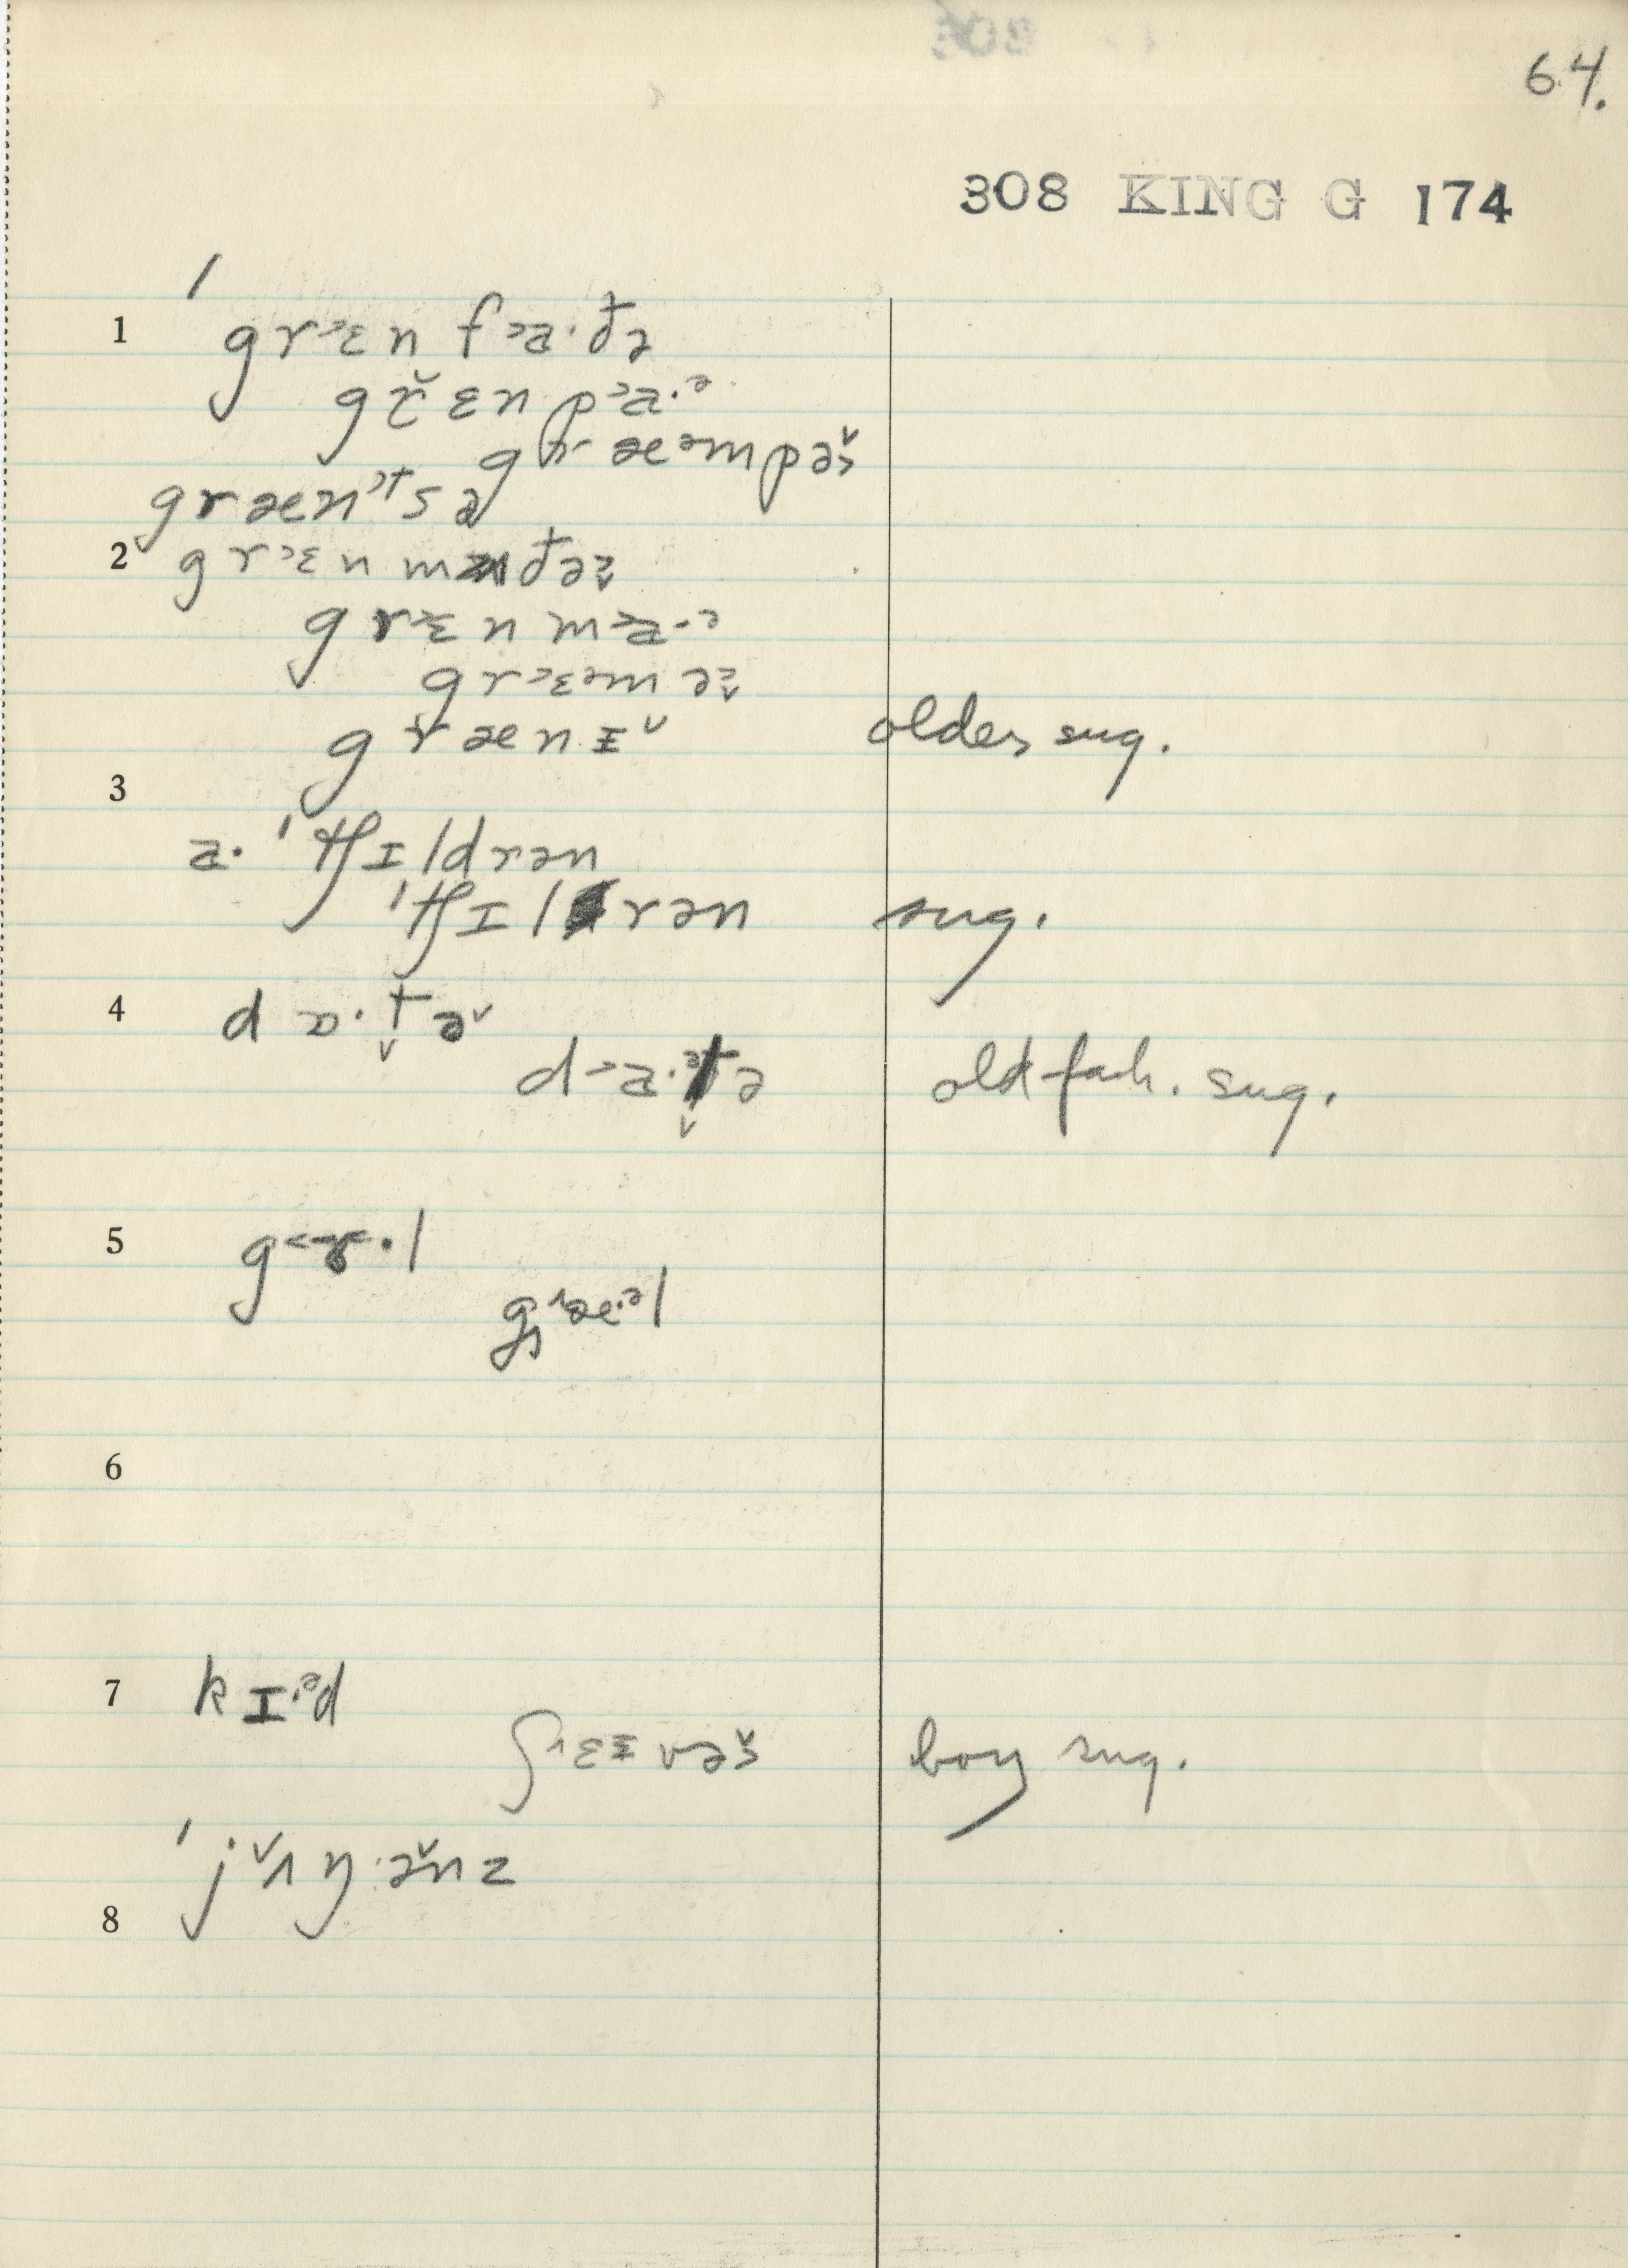 64.
308 KING G 174
1 ˈgr˃ɛn f˃a·ðə
gr̆ɛn p˃a·ᵊ
gr˃æᵊmpə̌s
grænᵗsə
2 gr˃ɛn mðə
gr˃ɛn m˃a·ᵊ
gr˃ɛᵊm ə
grænɪ˅ older sug.
3
a· ˈtʃɪldrən
ˈtʃɪlrən sug.
4 dɒ·t̬ə˅
d˃a·ᵊt̬ə old fash. sug.
5 gɝ·l
gæ·ᵊl
6
7 kɪ·ᵊd
ʃɛɪvəš boy sug.
ˈj˅ʌŋ·ənz
8